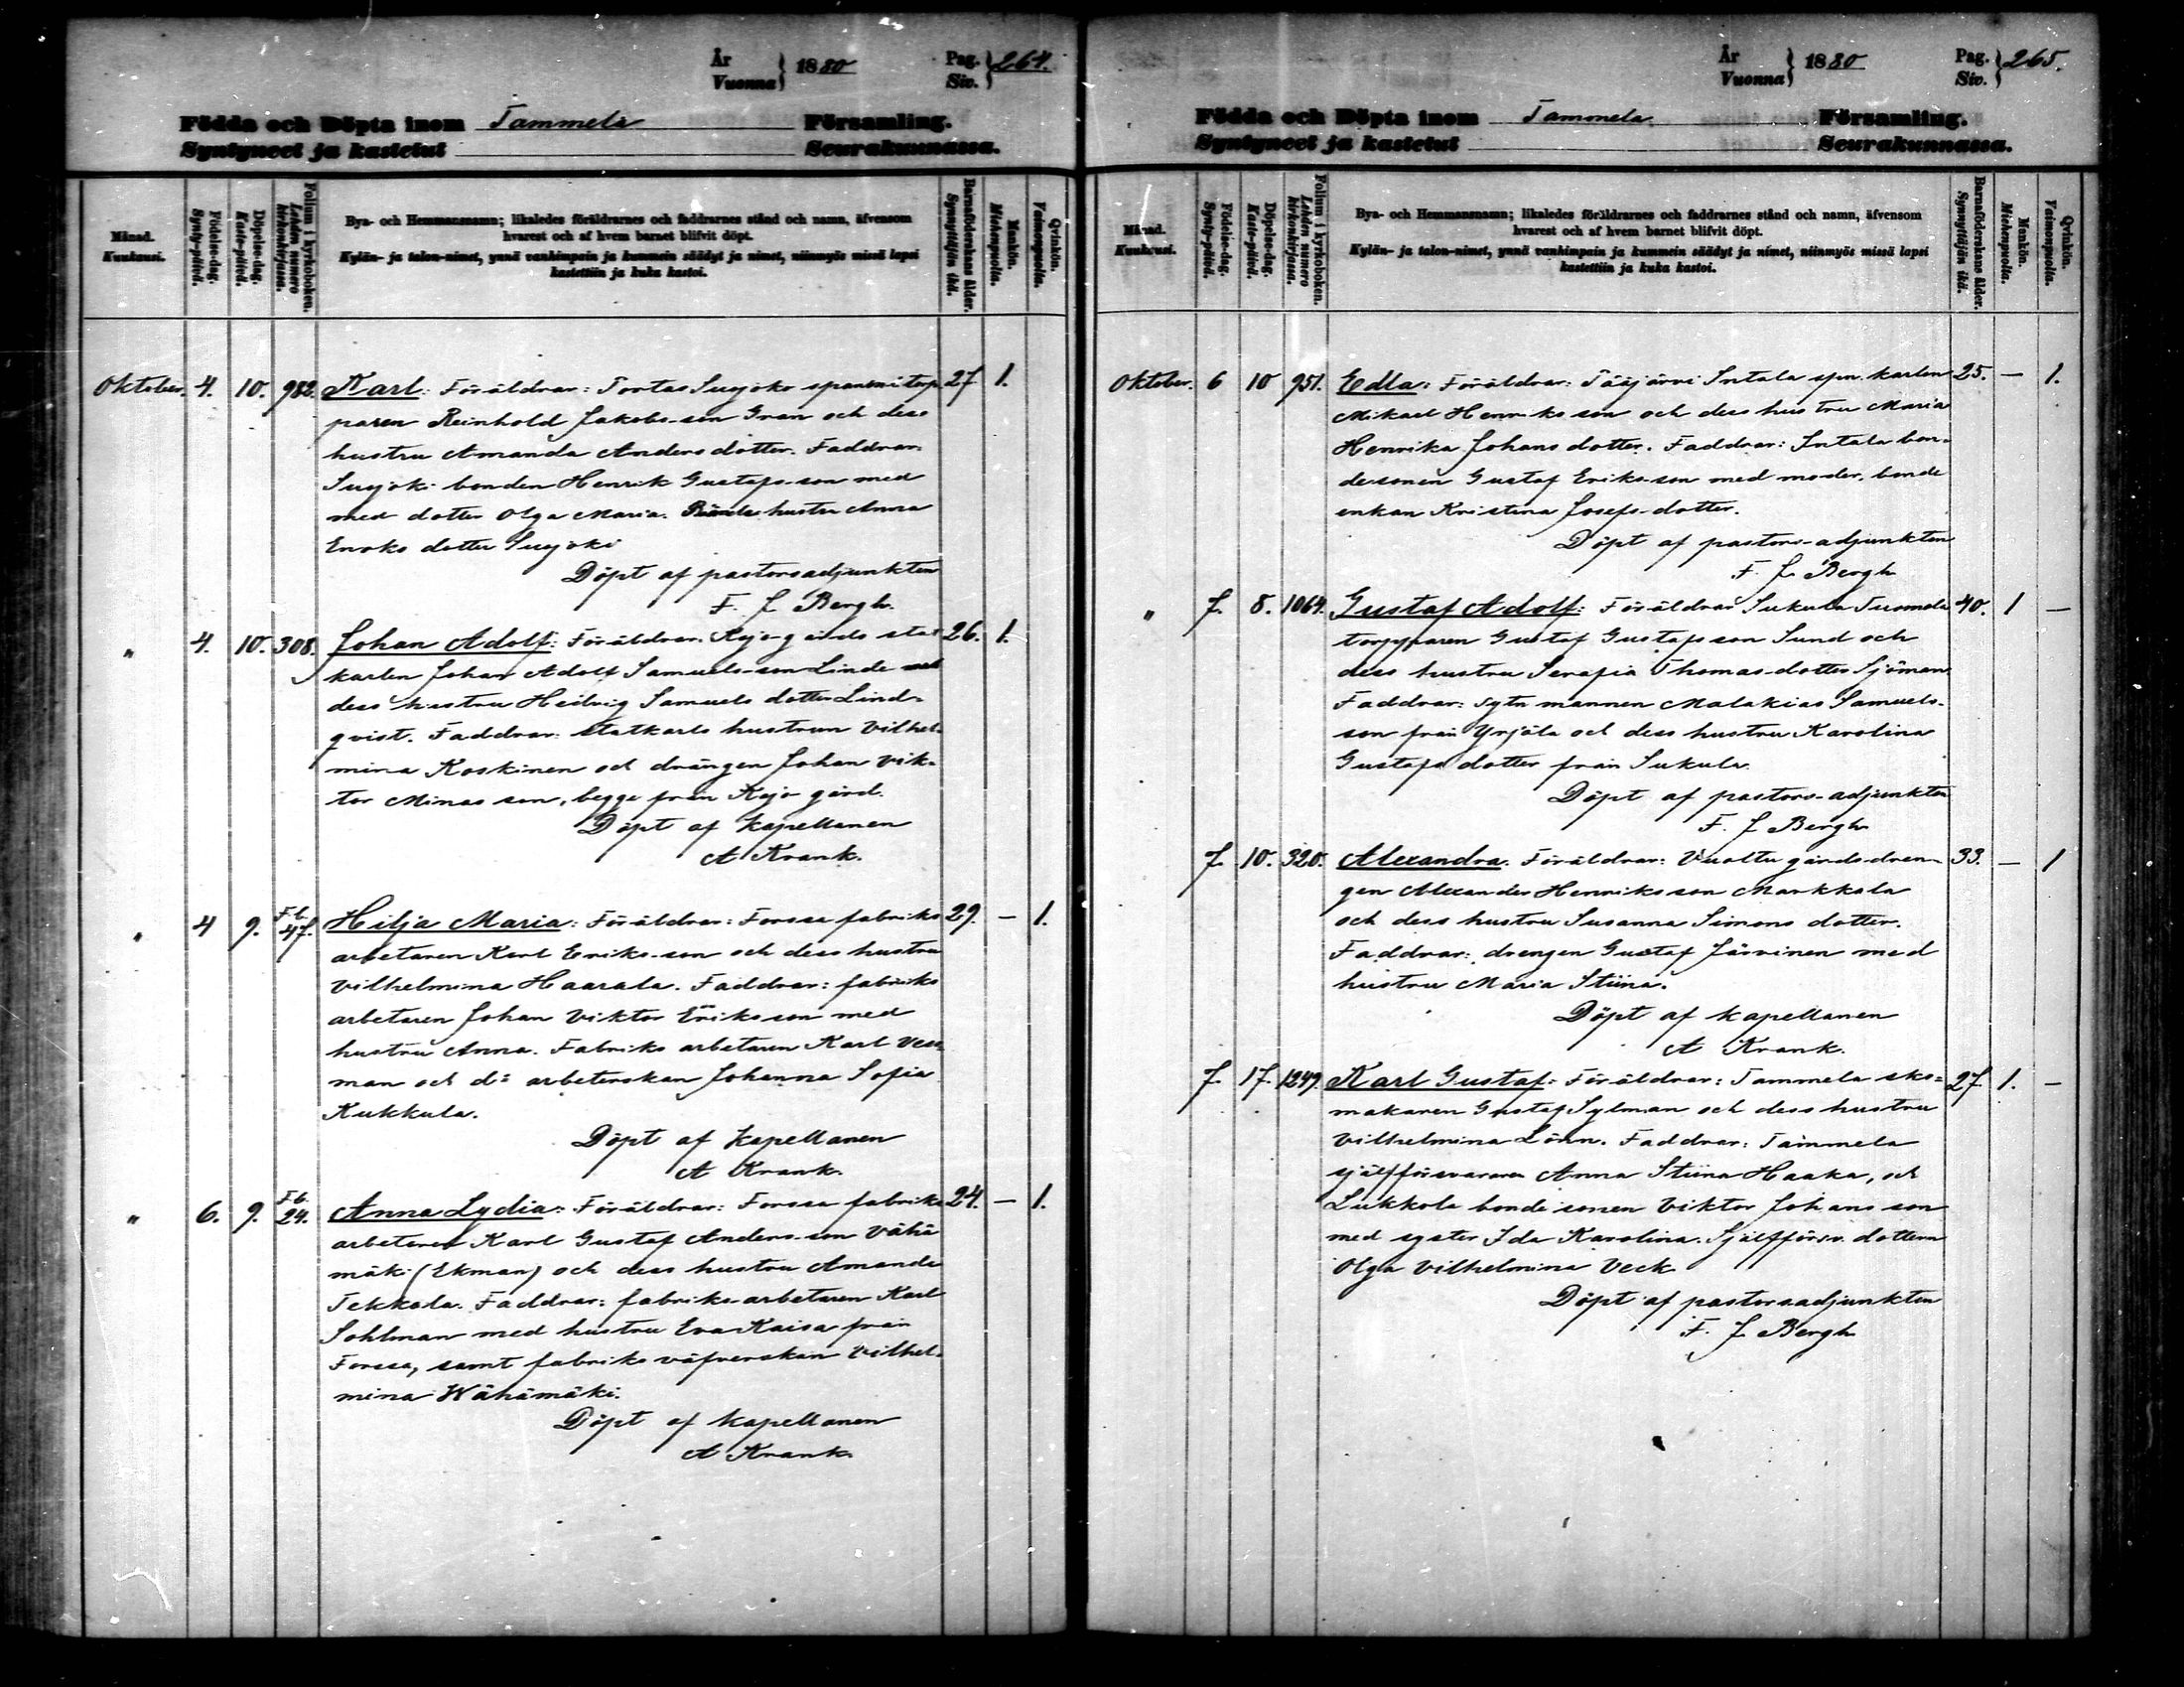 År
Vuonna } 1880
Pag.
Siv. } 264.
Födda och Döpta inom Tammela Församling.
Syntyneet ja kastetut Seurakunnassa.
Månad.
Kuukausi.
Födelse-dag.
Synty-päivä.
Döpelse-dag.
Kaste-päivä.
Folium i kyrkoboken.
Lehden numero kirkonkirjassa.
Bya- och Hemmansnamn; likaledes föräldrarnes och faddrarnes stånd och namn, äfvensom
hvarest och af hvem barnet blifvit döpt.
Kylän- ja talon-nimet, ynnä vanhimpain ja kummein säädyt ja nimet, niinmyös missä lapsi
kastettiin ja kuka kastoi.
Barnaföderskans ålder.
Synnyttäjän ikä.
Mankön.
Miehenpuolia.
Qvinkön.
Vaimonpuolia.
Oktober. 4. 10. 982. Karl: Föräldrar: Tortas Suojoki spanmi torp 27 1.
paren Reinhold Jakobs-son Gran och dess
hustru Amanda Anders dotter. Faddrar:
Suojoki bonden Henrik Gustafs-son med
med dotter Olga Maria. hustru Anna
Enoks dotter Suojoki
Döpt af pastorsadjunkten
F. J Bergh.
" 4. 10. 308. Johan Adolf: Föräldrar: Kojo gårds stat 26. 1.
karlen Johan Adolf Samuels-son Linde med
dess hustru Heilvig Samuels dotter Lind-
qvist. Faddrar: Statkarls hustrun Vilhel-
mina Koskinen och drängen Johan Vik-
tor Minas son, begge från Kojo gård.
Döpt af kapellanen
A Krank.
" 4 9. F.b. 47. Hilja Maria: Föräldrar: Forssa fabriks 29. — 1.
arbetaren Karl Eriks-son och dess hustru
Vilhelmina Haarala. Faddrar: fabriks
arbetaren Johan Viktor Eriksson med
hustru Anna. Fabriks arbetaren Karl Ves-
man och d:o arbeterskan Johanna Sofia
Kukkula.
Döpt af kapellanen
A Krank.
" 6. 9. F.b. 24. Anna Lydia: Föräldrar: Forssa fabriks 24. — 1.
arbetaren Karl Gustaf Anders-son Vähä
mäki (Ekman) och dess hustru Amanda
Tekkala. Faddrar: fabriks-arbetaren Karl
Sohlman med hustru Eva Kaisa från
Forssa, samt fabriks väfverskan Vilhel-
mina Wähämäki.
Döpt af kapellanen
A Krank.
År
Vuonna } 1880
Pag.
Siv. } 265.
Födda och Döpta inom Tammela Församling.
Syntyneet ja kastetut Seurakunnassa.
Månad.
Kuukausi.
Födelse-dag.
Synty-päivä.
Döpelse-dag.
Kaste-päivä.
Folium i kyrkoboken.
Lehden numero kirkonkirjassa.
Bya- och Hemmansnamn; likaledes föräldrarnes och faddrarnes stånd och namn, äfvensom
hvarest och af hvem barnet blifvit döpt.
Kylän- ja talon-nimet, ynnä vanhimpain ja kummein säädyt ja nimet, niinmyös missä lapsi
kastettiin ja kuka kastoi.
Barnaföderskans ålder.
Synnyttäjän ikä.
Mankön.
Miehenpuolia.
Qvinkön.
Vaimonpuolia.
Oktober. 6 10 951. Edla: Föräldrar: Pääjärvi Intala spn. karlen 25. — 1.
Mikael Henriksson och dess hustru Maria
Henrika Johans dotter. Faddrar: Intala bon-
desonen Gustaf Eriks-son med moder, bonde
enkan Kristina Josefs-dotter.
Döpt af pastors-adjunkten
F. J Bergh
" 7. 8. 1064. Gustaf Adolf: Föräldrar Sukula Tuomola 40. 1 —
torpparen Gustaf Gustafsson Sund och
dess hustru Serafia Thomas-dotter Sjöman
Faddrar: Sytn mannen Malakias Samuels-
son från Yrjälä och dess hustru Karolina
Gustafs dotter från Sukula.
Döpt af pastors-adjunkten
F. J Bergh
7. 10. 320. Alexandra. Föräldrar: Vuoltu gårds-drän- 33. — 1
gen Alexander Henriksson Markkala
och dess hustru Susanna Simons dotter.
Faddrar: drengen Gustaf Järvinen med
hustru Maria Stiina.
Döpt af kapellanen
A Krank.
7. 17. 1249. Karl Gustaf: Föräldrar: Tammela sko- 27 1. —
makaren Gustaf Sylman och dess hustru
Vilhelmina Lönn. Faddrar: Tammela
sjelfförsvararen Anna Stiina Haaka, och
Lukkola bonde sonen Viktor Johans son
med syster Ida Karolina. Sjelfförsv. dottern
Olga Vilhelmina Veck
Döpt af pastorsadjunkten
F. J Bergh